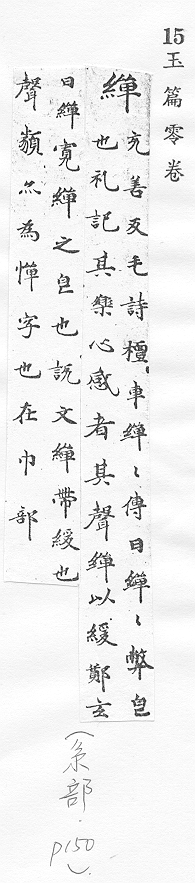 15 玉篇零卷
繟 充善反毛詩檀車繟〻傳曰繟〻弊皃
也礼記其樂心感者其聲繟以緩鄭玄
曰繟寬繟之皃也説文繟帶緩也
聲類亦為幝字也在巾部
(糸部. p150).